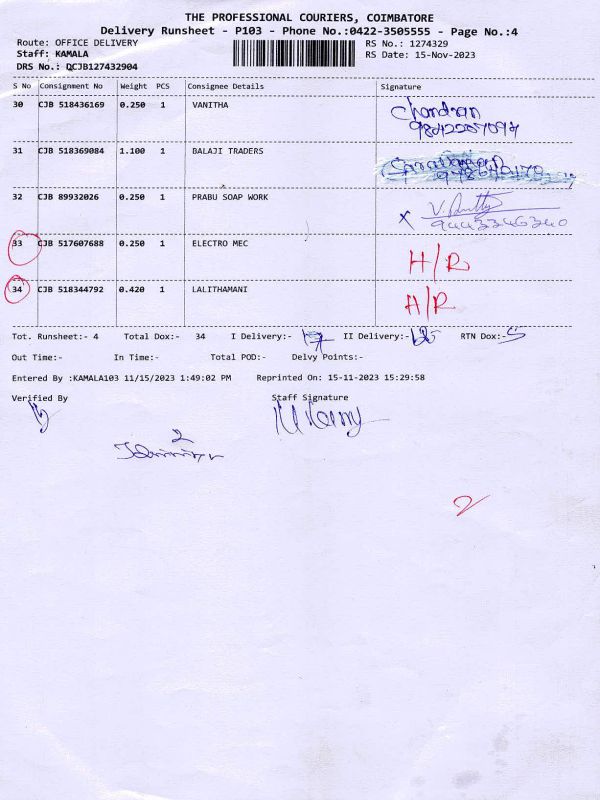 THE PROFESSIONAL COURIERS, COIMBATORE
Delivery Runsheet - P103 - Phone No.:0422-3505555 - Page No.:4
Route: OFFICE DELIVERY RS No.: 1274329
Staff: KAMALA RS Date: 15-Nov-2023
DRS No.: QCJB127432904
S No Consignment No Weight PCS Consignee Details Signature
30 CJB 518436169 0.250 1 VANITHA Chandran
31 CJB 518369084 1.100 1 BALAJI TRADERS
32 CJB 89932026 0.250 1 PRABU SOAP WORK X 9443346340
33 CJB 517607688 0.250 1 ELECTRO MEC H/R
34 CJB 518344792 0.420 1 LALITHAMANI H/R
Tot. Runsheet:- 4 Total Dox:- 34 I Delivery:- 17 II Delivery:- RTN Dox:- 5
Out Time:- In Time:- Total POD:- Delvy Points:-
Entered By :KAMALA103 11/15/2023 1:49:02 PM Reprinted On: 15-11-2023 15:29:58
Verified By Staff Signature
2
2